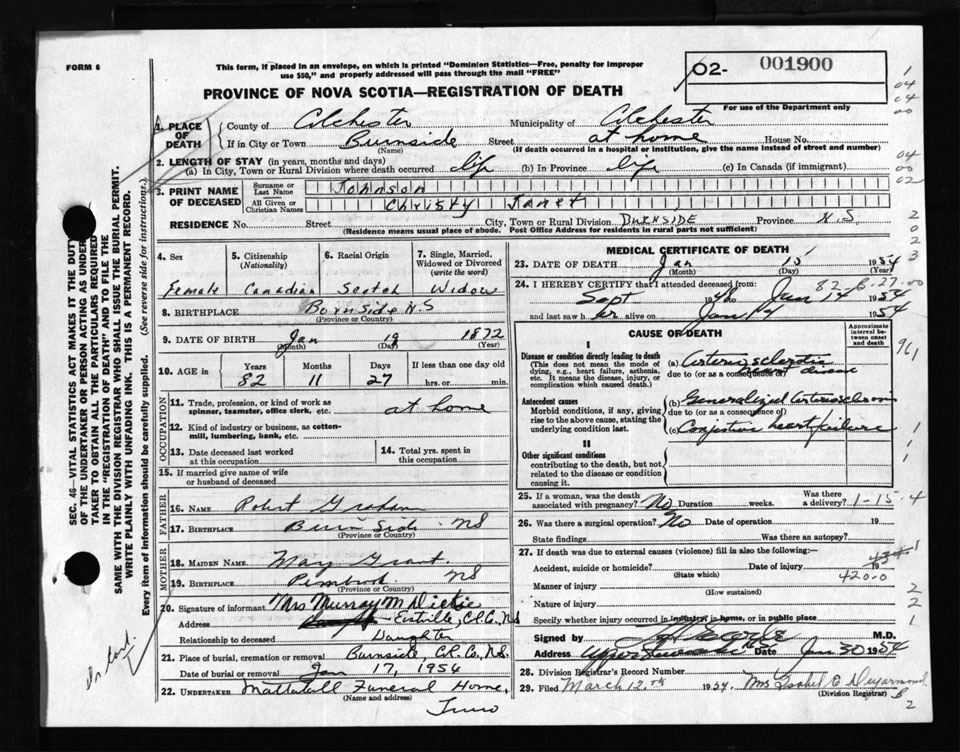 FORM 6
This form, if placed in an envelope, on which is printed "Dominion Statistics—Free, penalty for improper
use $50," and properly addressed will pass through the mail "FREE"
PROVINCE OF NOVA SCOTIA—REGISTRATION OF DEATH
02- 001900
For use of the Department only
1. PLACE OF DEATH
County of Colchester Municipality of Colchester
If in City or Town Burnside Street at home House No.
(Name) (If death occurred in a hospital or institution, give the name instead of street and number)
2. LENGTH OF STAY (in years, months and days)
(a) In City, Town or Rural Division where death occurred life (b) In Province life (c) In Canada (if immigrant)
3. PRINT NAME OF DECEASED
Surname or Last Name Johnson
All Given or Christian Names Christy Janet
RESIDENCE No. Street City, Town or Rural Division BURNSIDE Province N.S
(Residence means usual place of abode. Post Office Address for residents in rural parts not sufficient)
4. Sex
Female
5. Citizenship (Nationality)
Canadian
6. Racial Origin
Scotch
7. Single, Married, Widowed or Divorced (write the word)
Widow
8. BIRTHPLACE BornSide N.S
(Province or Country)
9. DATE OF BIRTH Jan 19 1872
(Month) (Day) (Year)
10. AGE in Years Months Days If less than one day old
82 11 27 hrs. or min.
OCCUPATION
11. Trade, profession, or kind of work as
spinner, teamster, office clerk, etc. at home
12. Kind of industry or business, as cotton-
mill, lumbering, bank, etc.
13. Date deceased last worked
at this occupation
14. Total yrs. spent in
this occupation
15. If married give name of wife
or husband of deceased
FATHER
16. NAME Robert Graham
17. BIRTHPLACE Burn Side NS
(Province or Country)
MOTHER
18. MAIDEN NAME May Grant
19. BIRTHPLACE NS
(Province or Country)
20. Signature of informant Mrs Murray M Dickie
Address Eastville, Col. Co., NS
Relationship to deceased Daughter
21. Place of burial, cremation or removal Burnside, Col. Co., N.S.
Date of burial or removal Jan 17, 1954
22. UNDERTAKER Mattatall Funeral Home,
(Name and address)
Truro
MEDICAL CERTIFICATE OF DEATH
23. DATE OF DEATH Jan 15 1954
(Month) (Day) (Year)
82-6-27-00
24. I HEREBY CERTIFY that I attended deceased from:
Sept 1948 to Jan 14 1954
and last saw her alive on Jan 14 1954
CAUSE OF DEATH
Approximate interval between onset and death
I
Disease or condition directly leading to death
(This does not mean the mode of dying, e.g., heart failure, asthenia, etc. It means the disease, injury, or complication which caused death.)
(a) Arteriosclerotic
due to (or as a consequence of) heart disease
Antecedent causes
Morbid conditions, if any, giving rise to the above cause, stating the underlying condition last.
(b) Generalized arteriosclerosis
due to (or as a consequence of)
(c) Congestive heart failure
II
Other significant conditions
contributing to the death, but not related to the disease or condition causing it.
25. If a woman, was the death
associated with pregnancy? No Duration weeks. Was there a delivery? 1-15-4
26. Was there a surgical operation? No Date of operation 19
State findings Was there an autopsy?
27. If death was due to external causes (violence) fill in also the following:—
Accident, suicide or homicide? Date of injury 19
(State which) 420.0
Manner of injury
(How sustained)
Nature of injury
Specify whether injury occurred in industry, in home, or in public place
Signed by M.D.
Address Date Jan 30 1954
28. Division Registrar's Record Number
29. Filed March 12th 1954. Mrs Isabel E Dejarmond
(Division Registrar)
SEC. 46—VITAL STATISTICS ACT MAKES IT THE DUTY
OF THE UNDERTAKER OR PERSON ACTING AS UNDER-
TAKER TO OBTAIN ALL THE PARTICULARS REQUIRED
IN THE "REGISTRATION OF DEATH" AND TO FILE THE
SAME WITH THE DIVISION REGISTRAR WHO SHALL ISSUE THE BURIAL PERMIT.
WRITE PLAINLY WITH UNFADING INK. THIS IS A PERMANENT RECORD.
Every item of information should be carefully supplied. (See reverse side for instructions.)